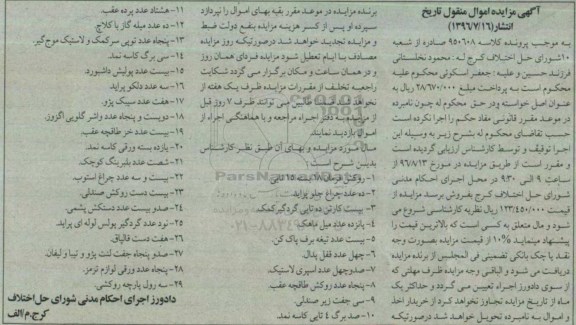 آگهی مزایده اموال منقول تاریخ
انتشار(۱۳۹۶/۷/۱۶)
به موجب پرونده کلاسه ۹۵۰۶۰۸ صادره از شعبه
۱۰شورای حل اختلاف کرج له: محمود نخلستانی
فرزند حسین و علیه: جعفر اسکوئی محکوم علیه
محکوم است به پرداخت مبلغ ۲۸/۶۷۰/۰۰۰ ریال به
عنوان اصل خواسته ودر حق محکوم له چون نامبرده
در موعد مقرر قانونی مفاد حکم را اجرا نکرده است
حسب تقاضای محکوم له بشرح زیر به وسیله این
اجرا توقیف و توسط کارشناس ارزیابی گردیده است
و مقرر است از طریق مزایده در مورخ ۹۶/۸/۱۳ از
ساعت ۹ الی ۹:۳۰ در محل اجرای احکام مدنی
شورای حل اختلاف کرج بفروش برسد مزایده از
قیمت ۱۲۳/۴۵۰/۰۰۰ ریال نظریه کارشناسی شروع می
شود و مال متعلق به کسی است که بالاترین قیمت را
پیشنهاد مینماید ۱۰% از قیمت مزایده بصورت وجه
نقد یا چک بانکی تضمینی فی المجلس از برنده مزایده
دریافت می شود و الباقی وجه مزایده ظرف مهلتی که
از سوی دادورز اجراء تعیین می گردد و حداکثر یک
ماه از تاریخ مزایده تجاوز نخواهد کرد از خریدار اخذ
و اموال به نامبرده تحویل خواهد شد درصورتیکه
برنده مزایده در موعد مقرر بقیه بهای اموال را نپردازد
سپرده او پس از کسر هزینه مزایده بنفع دولت ضبط
و مزایده تجدید خواهد شد درصورتیکه روز مزایده
مصادف با ایام تعطیل شود مزایده فردای همان روز
و در همان ساعت و مکان برگزار می گردد شکایت
راجعه تخلف از مقررات مزایده ظرف یک هفته از
از مزایده به دفتر اجراء مراجعه و با هماهنگی اجراء از
اموال بازدید نمایند.
مال مورد مزایده و بهای آن طبق نظر کارشناس
بدین شرح است:
۱- روکش فرمان ۱۸ بسته ۱۵ تایی
۲- ده عدد چراغ جلو پراید
۳- بیست کارتن ده تایی گردگیر کمک.
۴- پانزده عدد میل ماهک
۵- بیست عدد تیغه برف پاک کن.
۶- چهل عدد قفل پدال.
۷- صدوچهل عدد اسپری لاستیک.
۸- پنجاه عدد روکش طاقچه عقب.
۹- سی جفت زیر صندلی.
۱۰- صد برگ ۴ تایی کاسه نمد.
۱۱- هشتاد عدد پرده عقب.
۱۲- ده عدد میله گاز با کلاچ.
۱۳- پنجاه عدد توپی سرکمک و لاستیک موج گیر.
۱۴- سی برگ کاسه نمد.
۱۵- بیست عدد پولیش داشبورد
۱۶- سه عدد دلکو پراید
۱۷- هفت عدد سیبک پژو.
۱۸- دویست و پنجاه عدد واشر گلویی اگزوز.
۱۹- بیست عدد خر طاقچه عقب.
۲۰- یازده بسته ورقی کاسه نمد.
۲۱- شصت عدد بلبرینگ کوچک.
۲۲- بیست و سه عدد چراغ استوپ.
۲۳- بیست دست روکش صندلی.
۲۴- صدو بیست عدد دستکش پشمی.
۲۵- نود عدد گردگیر پولس لوله ای پراید.
۲۶- هفت دست قالپاق.
۲۷- صدو پنجاه جفت لنت پژو و تیبا و لیفان.
۲۸- پنجاه عدد ورقی لوازم ترمز.
۲۹- سه رول پارچه روکشی.
دادورز اجرای احکام مدنی شورای حل اختلاف
کرج. م/الف
ParsNamadData
۰۲۱-۸۸۳۴۹